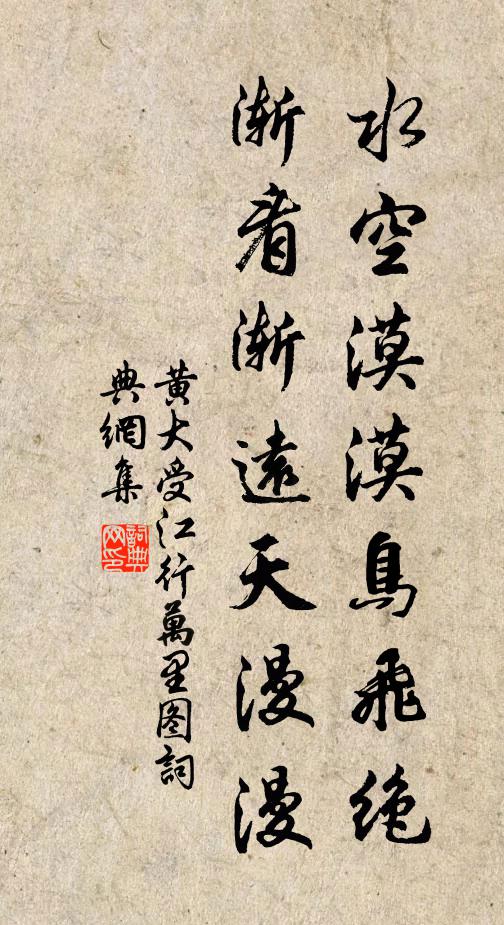 水空漠漠鳥飛絶
漸看漸遠天漫漫
黄大受江行萬里图詞
典網集
詞典
网印